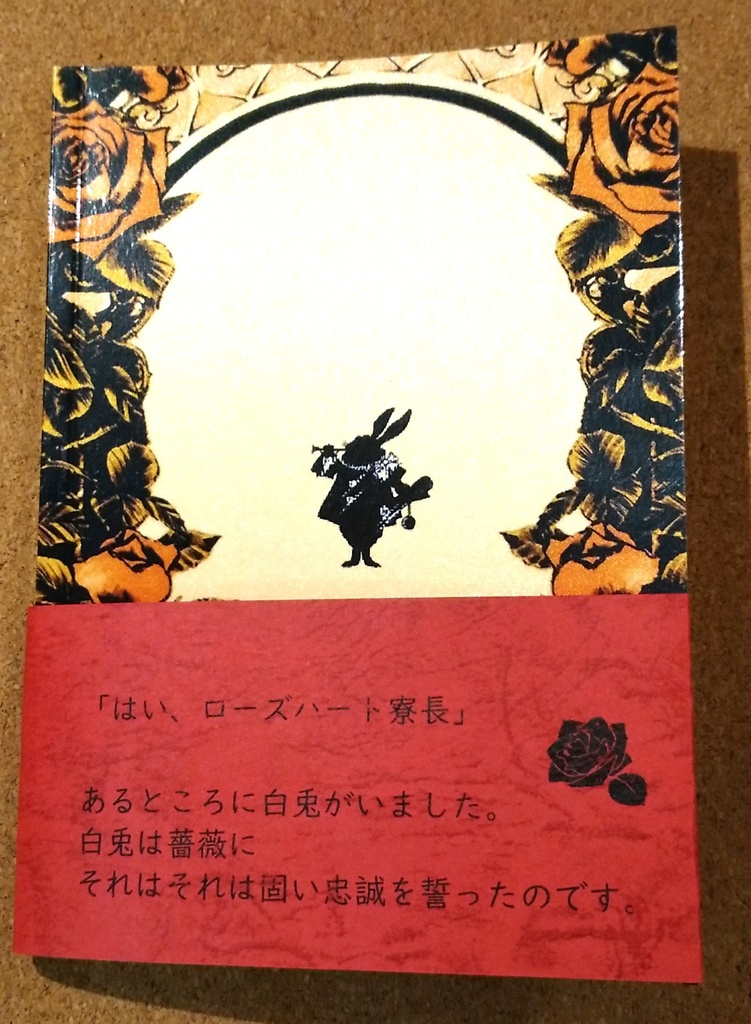 「はい、ローズハート寮長」
あるところに白兎がいました。
白兎は薔薇に
それはそれは固い忠誠を誓ったのです。